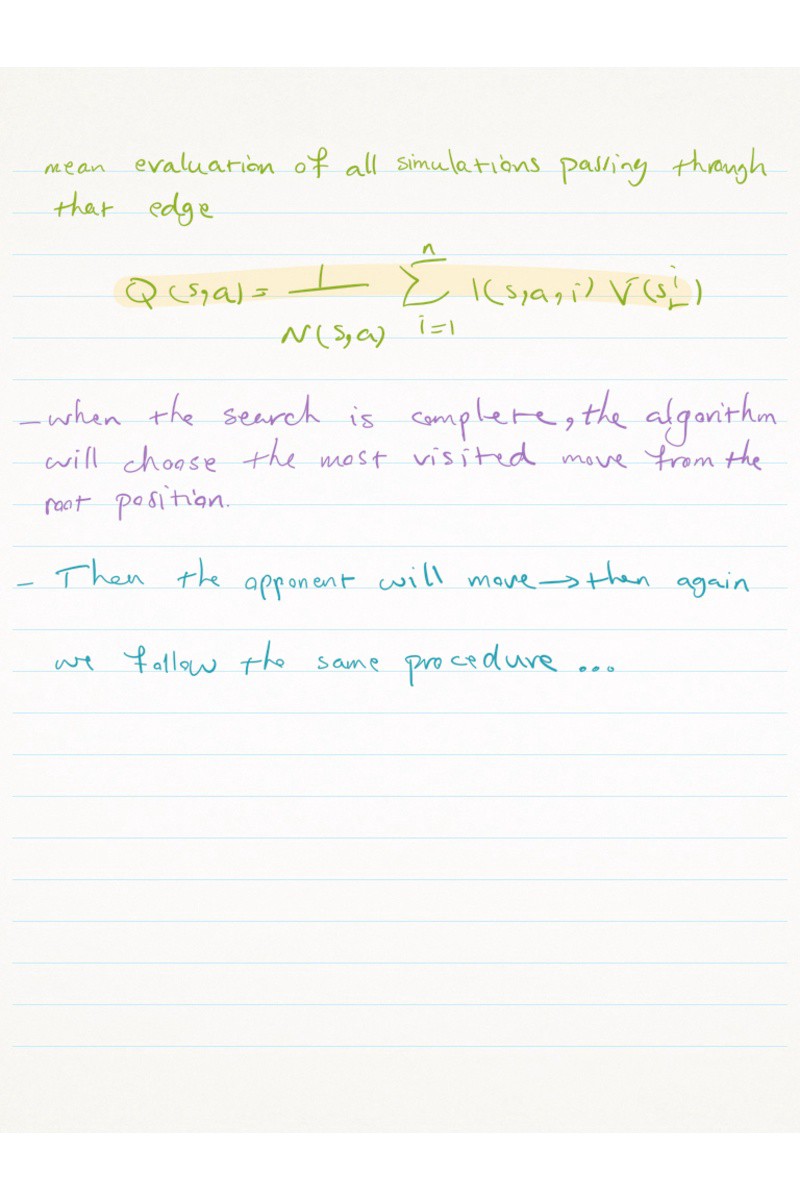 mean evaluation of all simulations passing through
that edge
Q(s,a) = 1/N(s,a) ∑_{i=1}^{n} 1(s,a,i) V(s_L^i)
- when the search is complete, the algorithm
will choose the most visited move from the
root position.
- Then the opponent will move → then again
we follow the same procedure ...